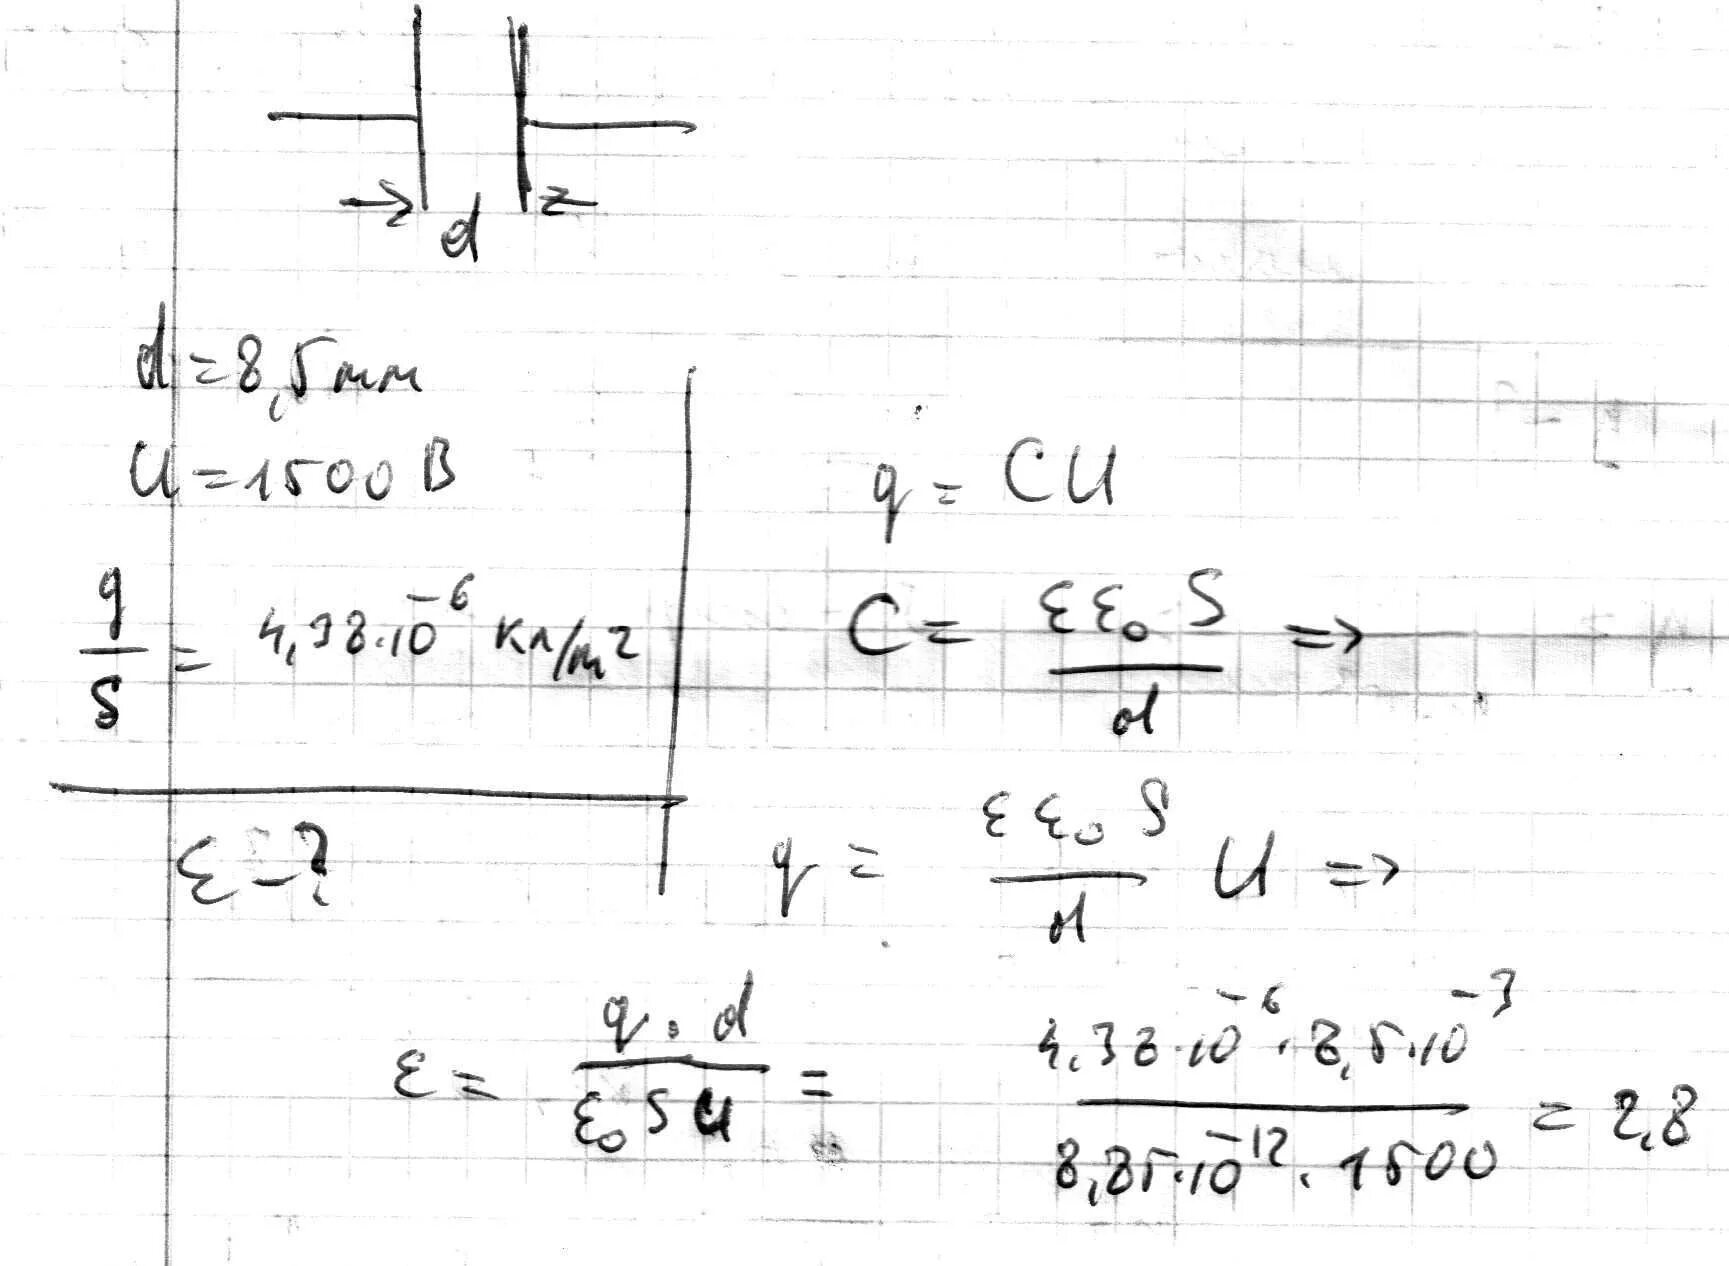 d
d = 8,5 mm
U = 1500 В
q/S = 4,38·10^-6 Кл/m^2
ε - ?
q = CU
C = εε₀S/d =>
q = εε₀S/d U =>
ε = q·d/ε₀SU = 4,38·10^-6 · 8,5·10^-3/8,85·10^-12 · 1500 = 2,8